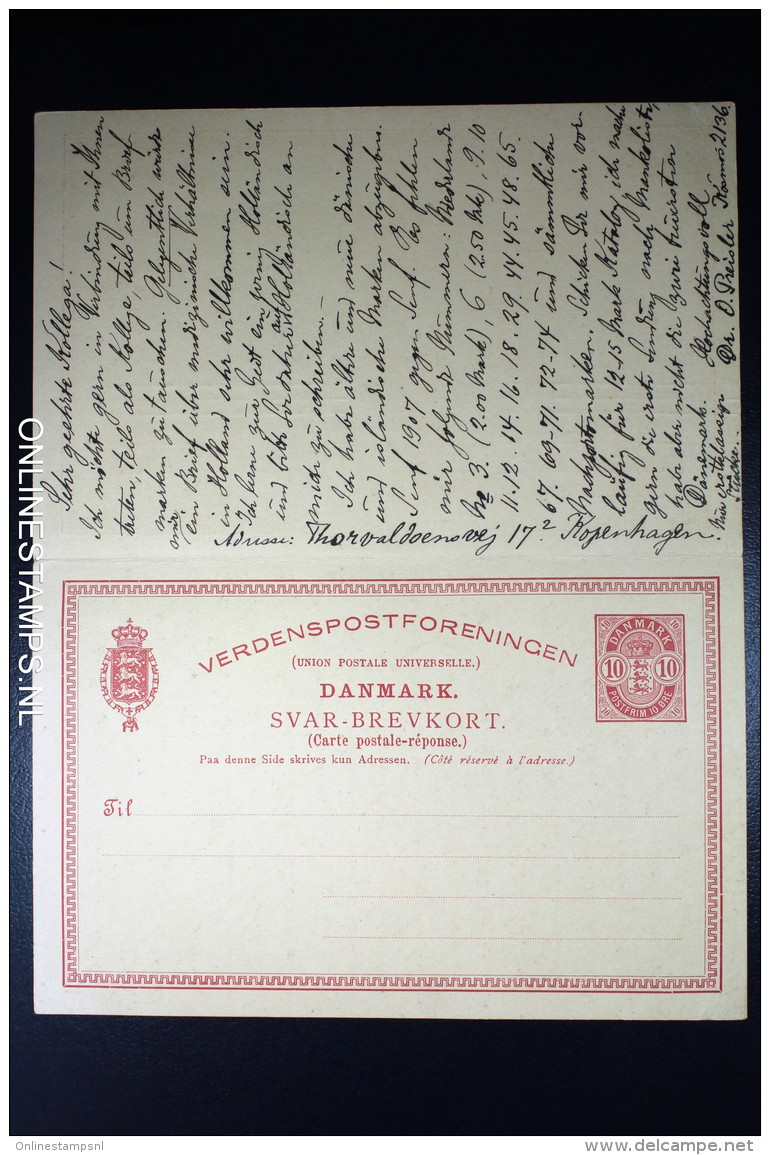 Sehr geehrte Kollega!
Ich möchte gern in Verbindung mit Ihnen
treten, teils als Kollege, teils um Brief
marken zu tauschen. Gelegentlich würde
mir ein Brief über medizinische Verhältnisse
in Holland sehr willkommen sein.
Ich lese zur Zeit ein wenig Holländisch
und bitte Sie auf Holländisch an
mich zu schreiben.—
Ich habe ältere und neue dänische
und isländische Marken abzugeben.
Senf 1907 gegen Senf. Es fehlen
mir folgende Nummern: Niederlande
No 3. (2.00 Mark), 6 (2.50 Mk), 9. 10
11. 12. 14. 16. 18. 29. 44. 45. 48. 65.
67. 69-71. 72-74 und sämmtliche
Nachportomarken. Schicken Sie mir vor-
läufig für 12-15 Mark Katalog ich nach
gern die erste Sendung nach Mankoliste,
habe aber nicht die zwei teuersten
Dänemark. Hochachtungsvoll
Nur erstklassige Stücke. Dr. O. Preisler Kosmos 2136.
Adresse: Thorvaldsensvej 17² Kopenhagen.
VERDENSPOSTFORENINGEN
(UNION POSTALE UNIVERSELLE.)
DANMARK.
SVAR-BREVKORT.
(Carte postale-réponse.)
Paa denne Side skrives kun Adressen. (Côté réservé à l'adresse.)
Til
10 DANMARK 10
10 10
10 POSTFRIM 10 ØRE 10
ONLINESTAMPS.NL
Onlinestampsnl
delcampe.net